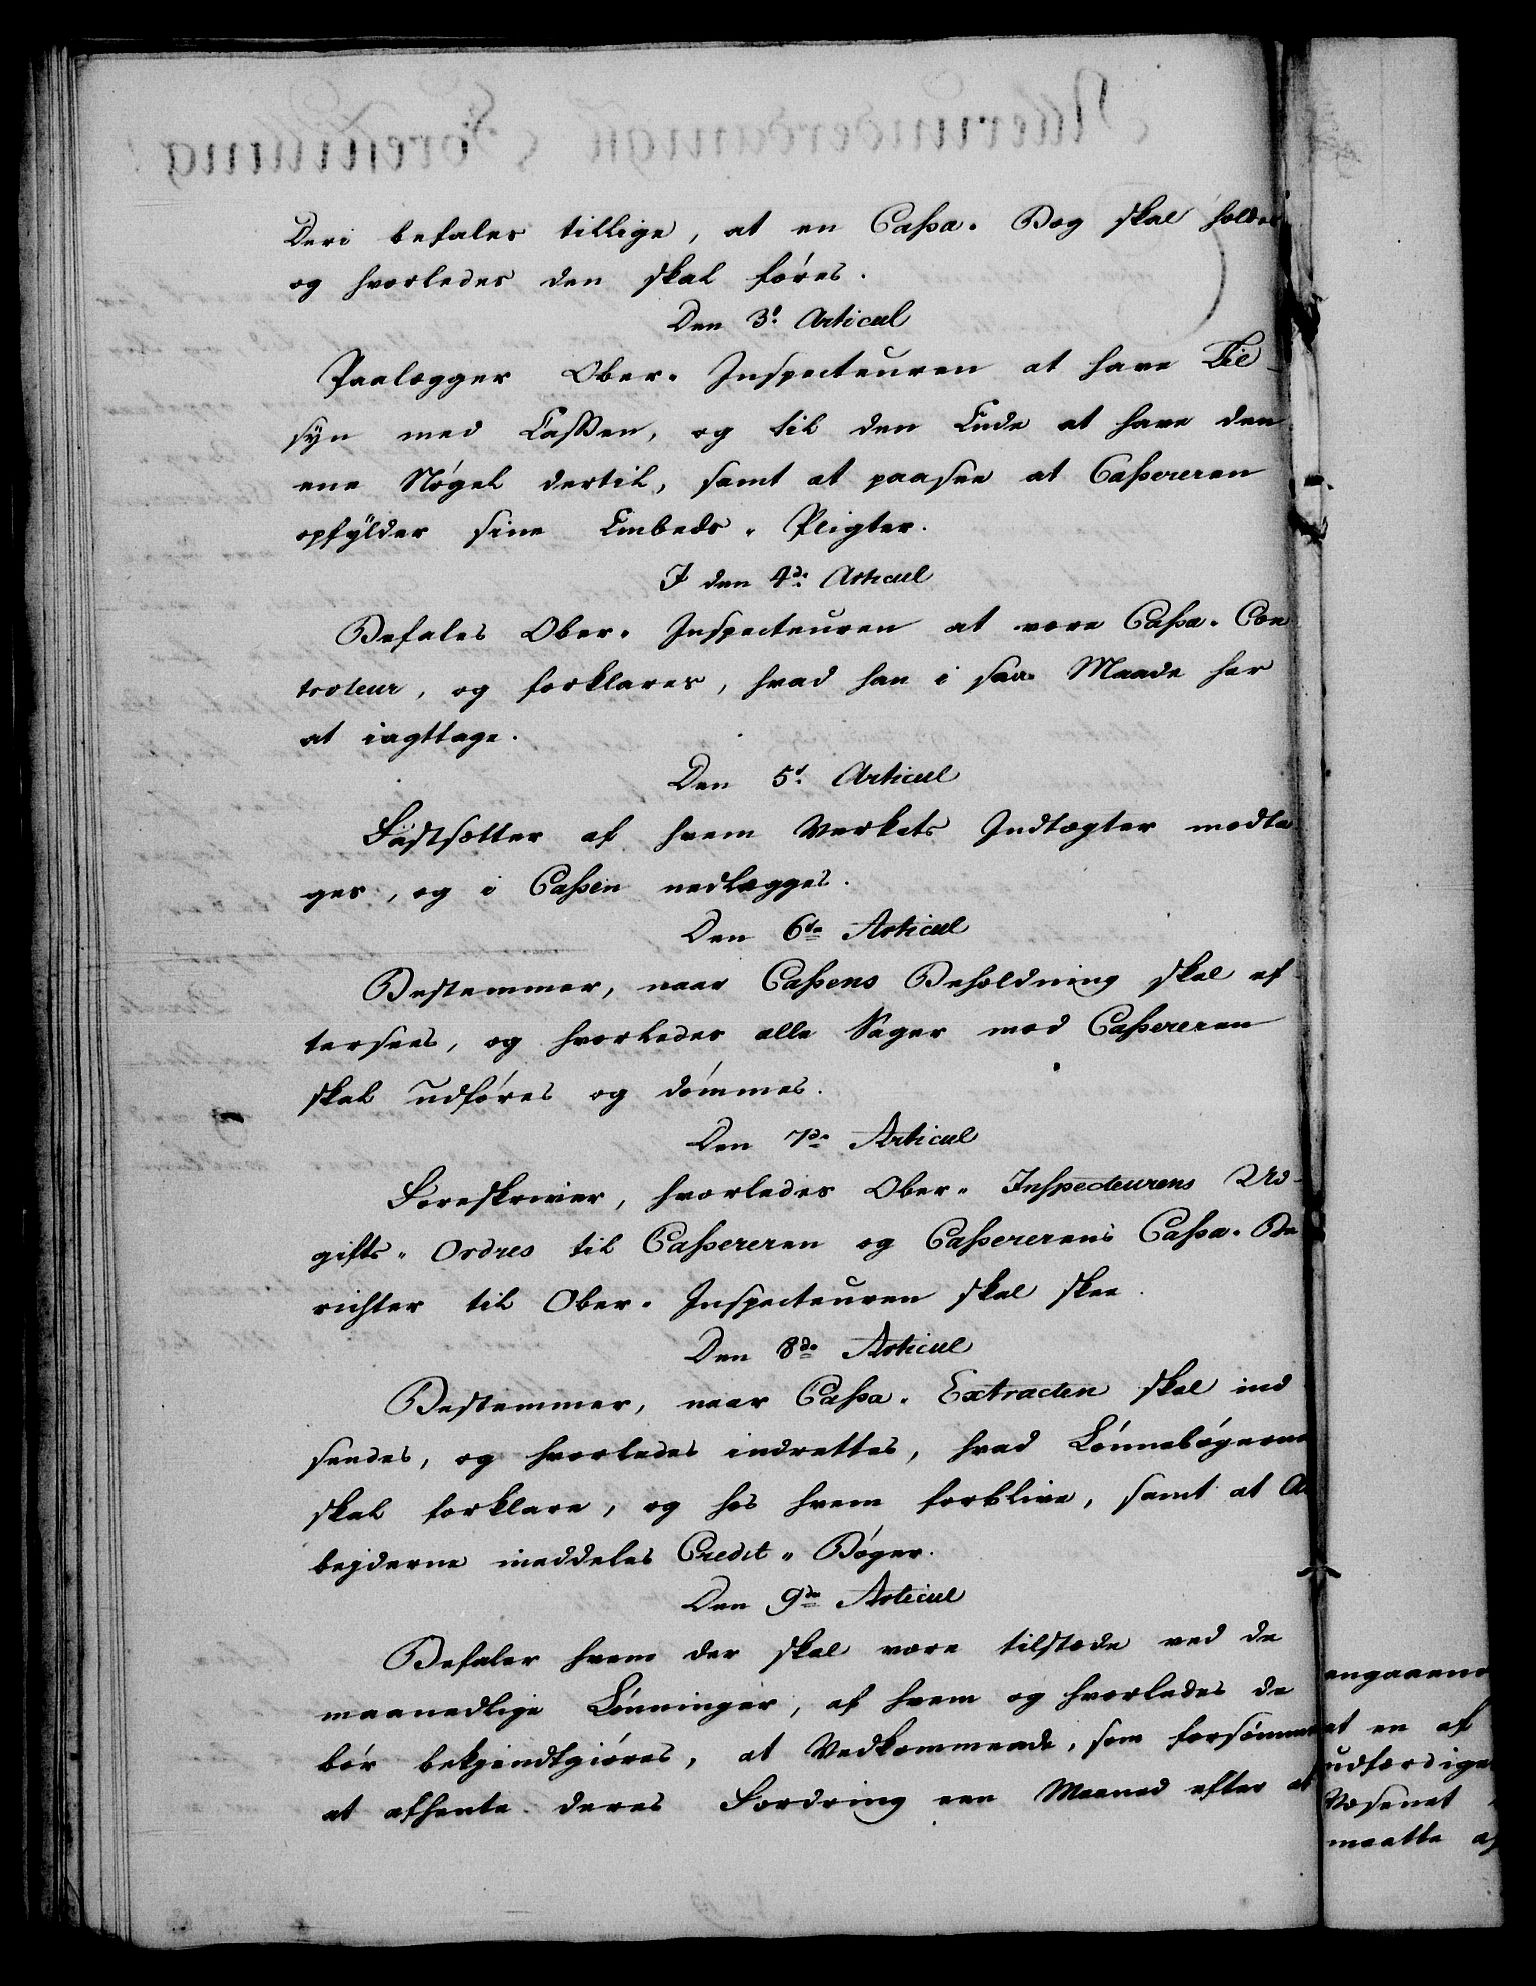 Deri befales tillige, at en Cassa-Bog skal holdes
og hvorledes den skal føres.
Den 3d. Articul
Paalægger Ober-Inspecteuren at have Til-
syn med Cassen, og til den Ende at have den
ene Nøgel dertil, samt at paasee at Cassereren
opfylder sine Embeds-Pligter.
I den 4de Articul
Befales Ober-Inspecteuren at være Cassa-Con
troleur, og forklares, hvad han i saa Maade har
at iagttage.
Den 5te Articul
Fastsætter af hvem Verkets Indtægter modta
ges, og i Cassen nedlægges.
Den 6te Articul
Bestemmer, naar Cassens Beholdning skal ef
tersees, og hvorledes alle Sager mod Cassereren
skal udføres og dømmes.
Den 7de Articul
Foreskriver, hvorledes Ober-Inspecteurens Ud-
gifts-Ordres til Cassereren og Cassererens Cassa-Be
richter til Ober-Inspecteuren skal skee.
Den 8de Articul
Bestemmer, naar Cassa-Extracten skal ind
sendes, og hvorledes indrettes, hvad Lønnebøgerne
skal forklare, og hos hvem forblive, samt at Ar
bejderne meddeles Credit-Bøger.
Den 9de Articul
Befaler hvem der skal være tilstæde ved de
maanedlige Lønninger, af hvem og hvorledes de
bør bekjendtgiøres, at Vedkommende, som forsømmer
at afhente deres Fordring een Maaned efter at
angaaend
at en af
udfærdige
Væsenet
maatte af